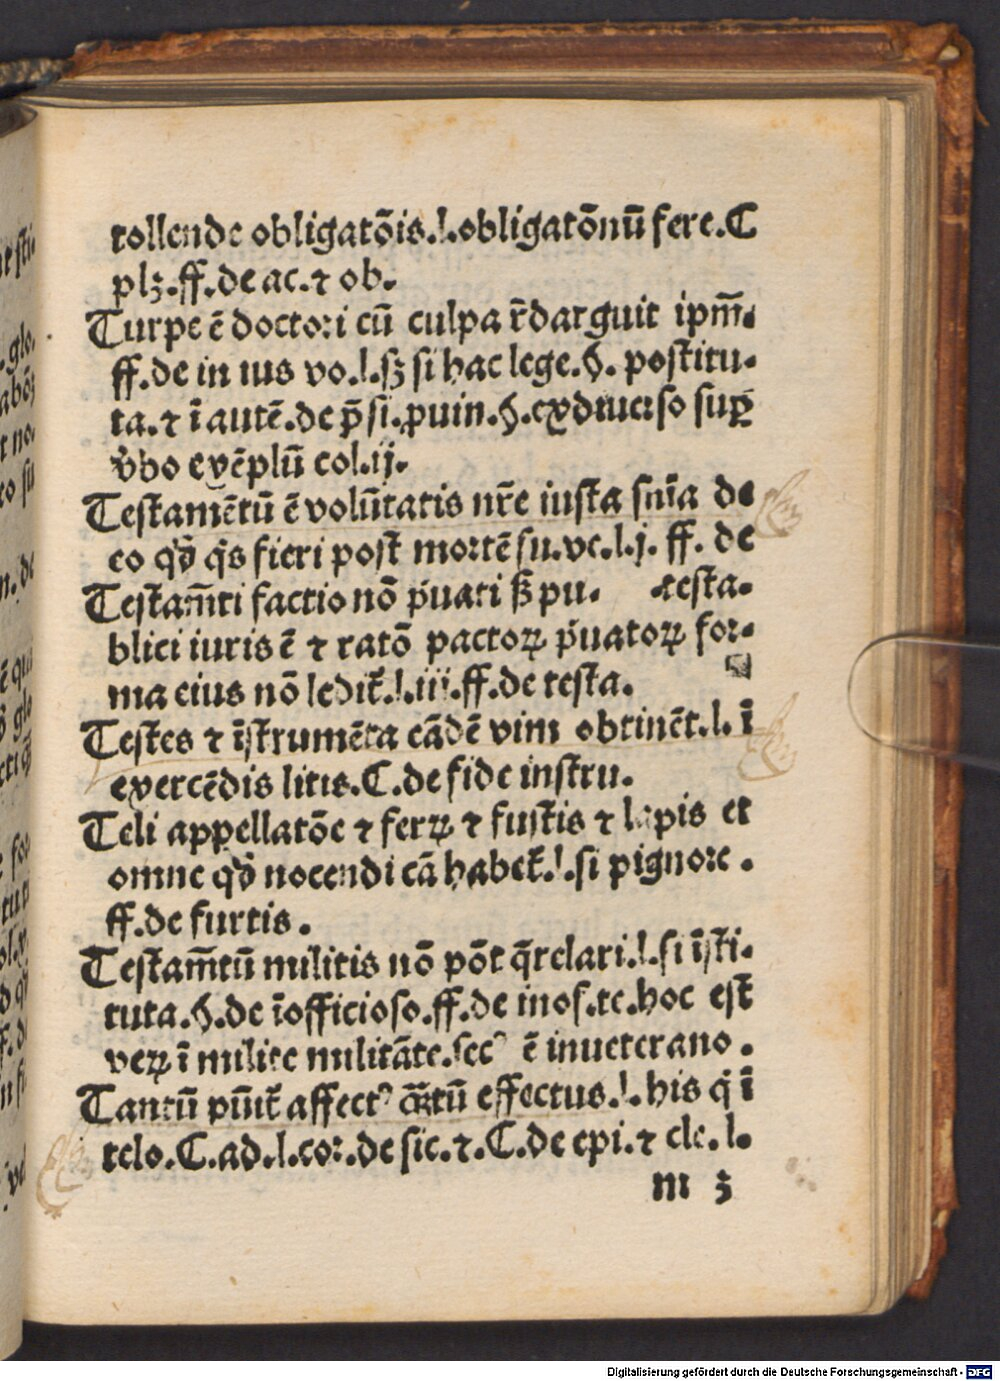 tollende obligatōis.l.obligatōnū fere.C
plꝫ.ff.de ac.⁊ ob.
Turpe ē doctori cū culpa r̄darguit ipm̄.
ff.de in ius vo.l.sꝫ si hac lege.§. postitu-
ta.⁊ ī autē.de p̄si.ꝓuin.§.exdiuerso suꝑ
v̓bo exēplū col.ij.
Testamētū ē volūtatis nr̄e iusta snīa de
eo qd̓ q̇s fieri post mortē su.ve.l.j. ff. de
Testam̄ti factio nō p̓uati sꝫ pu- testa.
blici iuris ē ⁊ ratō pactoꝝ p̓uatoꝝ for-
ma eius nō ledit̄.l.iii.ff.de testa.
Testes ⁊ īstrumēta eādē vim obtinēt.l.ī
exercēdis litis.C.de fide instru.
Teli appellatōe ⁊ ferꝝ ⁊ fustis ⁊ lapis et
omne qd̓ nocendi cā habet̄.l.si pignore.
ff.de furtis.
Testam̄tū militis nō pōt q̄relari.l.si īsti-
tuta.§.de īofficioso.ff.de inof.te.hoc est
veꝝ ī milite militāte.secꝰ ē inueterano.
Tantū pūit̄ affectꝰ q̄ꝫtū effectus.l.his q̇ ī
telo.C.ad.l.cor.de sic.⁊.C.de epi.⁊ cle.l.
m 3
Digitalisierung gefördert durch die Deutsche Forschungsgemeinschaft - DFG